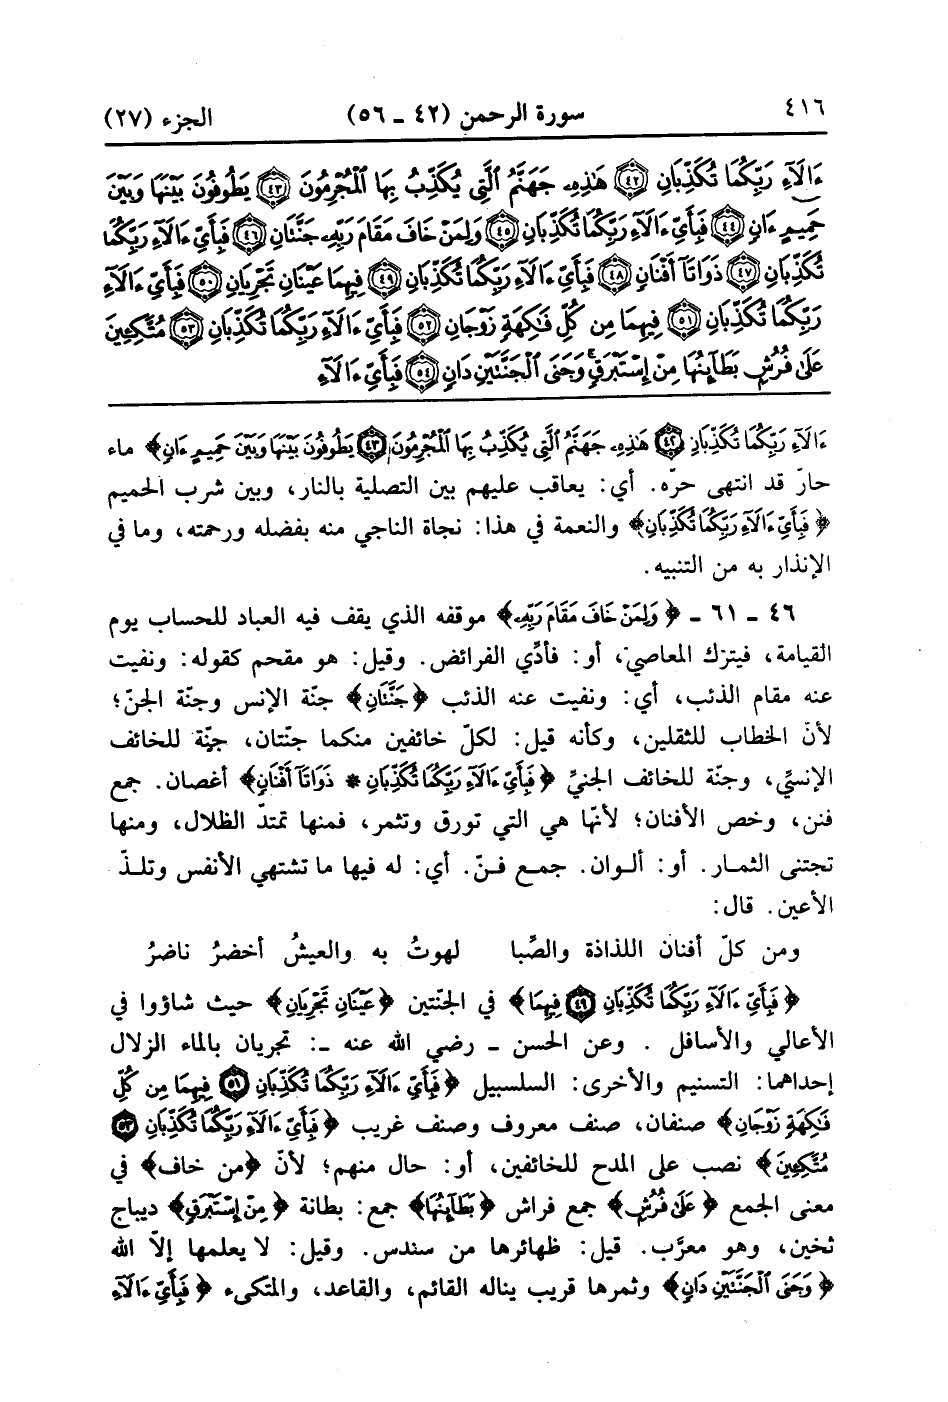 ٤١٦ سورة الرحمن (٤٢ ـ ٥٦) الجزء (٢٧)
ءَالَآءِ رَبِّكُمَا تُكَذِّبَانِ ﴿٤٢﴾ هَٰذِهِۦ جَهَنَّمُ ٱلَّتِى يُكَذِّبُ بِهَا ٱلْمُجْرِمُونَ ﴿٤٣﴾ يَطُوفُونَ بَيْنَهَا وَبَيْنَ
حَمِيمٍ ءَانٍ ﴿٤٤﴾ فَبِأَىِّ ءَالَآءِ رَبِّكُمَا تُكَذِّبَانِ ﴿٤٥﴾ وَلِمَنْ خَافَ مَقَامَ رَبِّهِۦ جَنَّتَانِ ﴿٤٦﴾ فَبِأَىِّ ءَالَآءِ رَبِّكُمَا
تُكَذِّبَانِ ﴿٤٧﴾ ذَوَاتَآ أَفْنَانٍ ﴿٤٨﴾ فَبِأَىِّ ءَالَآءِ رَبِّكُمَا تُكَذِّبَانِ ﴿٤٩﴾ فِيهِمَا عَيْنَانِ تَجْرِيَانِ ﴿٥٠﴾ فَبِأَىِّ ءَالَآءِ
رَبِّكُمَا تُكَذِّبَانِ ﴿٥١﴾ فِيهِمَا مِن كُلِّ فَٰكِهَةٍ زَوْجَانِ ﴿٥٢﴾ فَبِأَىِّ ءَالَآءِ رَبِّكُمَا تُكَذِّبَانِ ﴿٥٣﴾ مُتَّكِـِٔينَ
عَلَىٰ فُرُشٍۭ بَطَآئِنُهَا مِنْ إِسْتَبْرَقٍ ۚ وَجَنَى ٱلْجَنَّتَيْنِ دَانٍ ﴿٥٤﴾ فَبِأَىِّ ءَالَآءِ
ءَالَآءِ رَبِّكُمَا تُكَذِّبَانِ ﴿٤٢﴾ هَٰذِهِۦ جَهَنَّمُ ٱلَّتِى يُكَذِّبُ بِهَا ٱلْمُجْرِمُونَ ﴿٤٣﴾ يَطُوفُونَ بَيْنَهَا وَبَيْنَ حَمِيمٍ ءَانٍ﴾ ماء
حارّ قد انتهى حرّه. أي: يعاقب عليهم بين التصلية بالنار، وبين شرب الحميم
﴿فَبِأَىِّ ءَالَآءِ رَبِّكُمَا تُكَذِّبَانِ﴾ والنعمة في هذا: نجاة الناجي منه بفضله ورحمته، وما في
الإنذار به من التنبيه.
٤٦ ـ ٦١ ـ ﴿وَلِمَنْ خَافَ مَقَامَ رَبِّهِۦ﴾ موقفه الذي يقف فيه العباد للحساب يوم
القيامة، فيترك المعاصي، أو: فأدِّي الفرائض. وقيل: هو مقحم كقوله: ونفيت
عنه مقام الذئب، أي: ونفيت عنه الذئب ﴿جَنَّتَانِ﴾ جنّة الإنس وجنّة الجنّ؛
لأنّ الخطاب للثقلين، وكأنه قيل: لكلّ خائفين منكما جنّتان، جنّة للخائف
الإنسيِّ، وجنّة للخائف الجنيِّ ﴿فَبِأَىِّ ءَالَآءِ رَبِّكُمَا تُكَذِّبَانِ * ذَوَاتَآ أَفْنَانٍ﴾ أغصان. جمع
فنن، وخص الأفنان؛ لأنّها هي التي تورق وتثمر، فمنها تمتدّ الظلال، ومنها
تجتنى الثمار. أو: ألوان. جمع فنّ. أي: له فيها ما تشتهي الأنفس وتلذّ
الأعين. قال:
ومن كلّ أفنان اللذاذة والصِّبا لهوتُ به والعيشُ أخضرُ ناضرُ
﴿فَبِأَىِّ ءَالَآءِ رَبِّكُمَا تُكَذِّبَانِ ﴿٤٩﴾ فِيهِمَا﴾ في الجنّتين ﴿عَيْنَانِ تَجْرِيَانِ﴾ حيث شاؤوا في
الأعالي والأسافل . وعن الحسن ـ رضي الله عنه ـ: تجريان بالماء الزلال
إحداهما: التسنيم والأخرى: السلسبيل ﴿فَبِأَىِّ ءَالَآءِ رَبِّكُمَا تُكَذِّبَانِ ﴿٥١﴾ فِيهِمَا مِن كُلِّ
فَٰكِهَةٍ زَوْجَانِ﴾ صنفان، صنف معروف وصنف غريب ﴿فَبِأَىِّ ءَالَآءِ رَبِّكُمَا تُكَذِّبَانِ ﴿٥٣﴾
مُتَّكِـِٔينَ﴾ نصب على المدح للخائفين، أو: حال منهم؛ لأنّ ﴿من خاف﴾ في
معنى الجمع ﴿عَلَىٰ فُرُشٍۭ﴾ جمع فراش ﴿بَطَآئِنُهَا﴾ جمع: بطانة ﴿مِنْ إِسْتَبْرَقٍ﴾ ديباج
ثخين، وهو معرَّب. قيل: ظهائرها من سندس. وقيل: لا يعلمها إلاّ الله
﴿وَجَنَى ٱلْجَنَّتَيْنِ دَانٍ﴾ وثمرها قريب يناله القائم، والقاعد، والمتكىء ﴿فَبِأَىِّ ءَالَآءِ